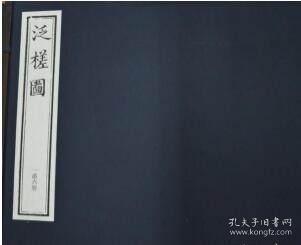 泛槎圖
一函六冊
孔夫子旧书网
www.kongfz.com